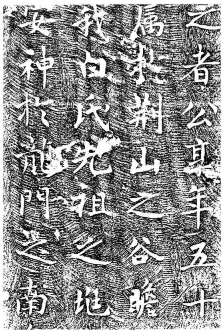 之者公其年五十
属於荆山之谷瞻
我白氏先祖之
安神於龍門之南